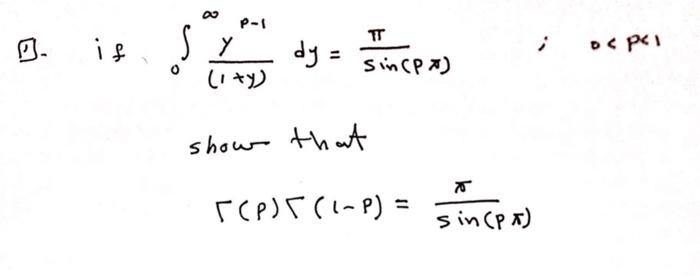 1. if ∫₀^∞ y^(p-1)/(1+y) dy = π/sin(pπ) ; 0<p<1
show that
Γ(p)Γ(1-p) = π/sin(pπ)